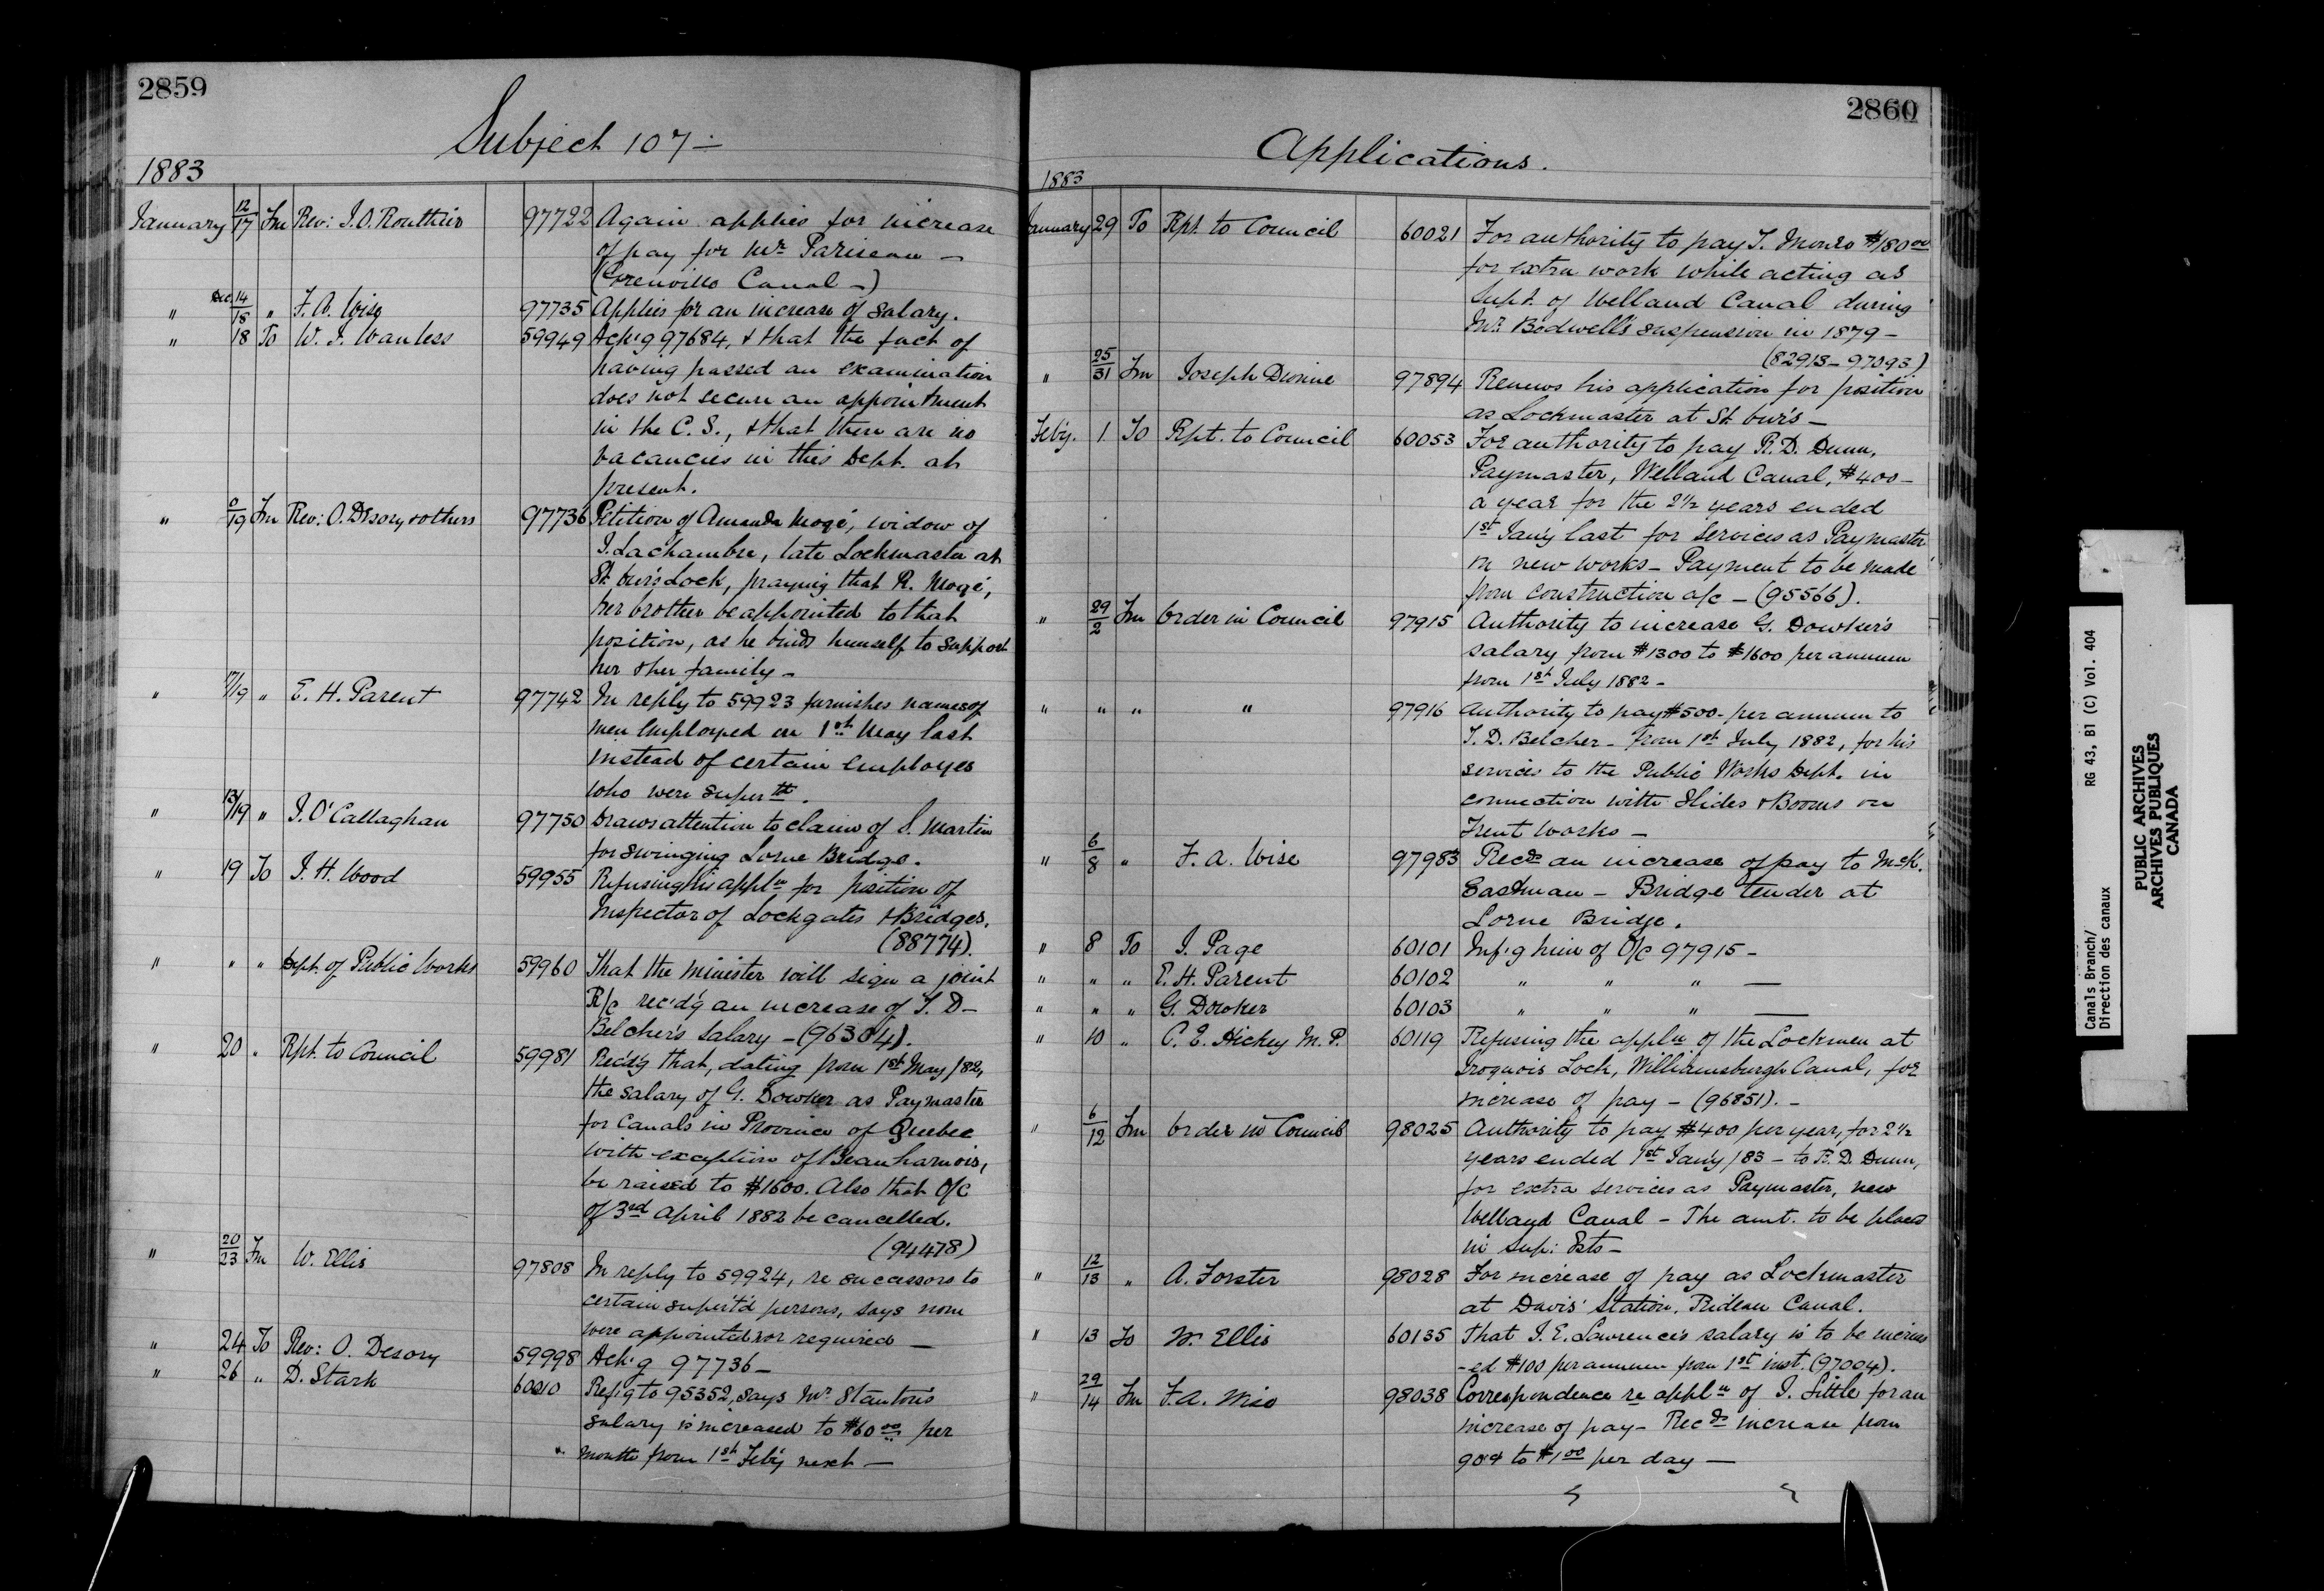 2859
Subject 107 —
1883
January 12/17 Fm Rev: J.O. Routhier 97722 Again applies for increase
of pay for Mr. Pariseau —
(Grenville Canal —)
" Dec. 14/18 " F. A. Wise 97735 Applies for an increase of salary.
" 18 To W. J. Wanless 59949 Ack'g 97684, & that the fact of
having passed an examination
does not secure an appointment
in the C. S., & that there are no
vacancies in this Dept. at
present.
" /19 Fm Rev: O. Desory & others 97736 Petition of Amanda Mogé, widow of
J. Lachambre, late Lockmaster at
St. Our's Lock, praying that R. Mogé,
her brother be appointed to that
position, as he binds himself to support
her & her family —
" 17/19 " E. H. Parent 97742 In reply to 59923 furnishes names of
men employed on 1st May last
instead of certain employes
who were super td.
" 13/19 " J. O'Callaghan 97750 Draws attention to claim of S. Martin
for swinging Lorne Bridge.
" 19 To J. H. Wood 59955 Refusing his appln for position of
Inspector of Lockgates & Bridges.
(88774).
" " " Dept. of Public Works 59960 That the Minister will sign a joint
R/c rec'd'g an increase of T. D—
Belcher's salary — (96304).
" 20 " Rpt. to Council 59981 Rec'd'g that, dating from 1st May /82,
the salary of G. Dowker as Paymaster
for Canals in Province of Quebec
with exception of Beauharnois,
be raised to $1600. Also that O/C
of 3rd April 1882 be cancelled.
(94478)
" 20/23 Fm W. Ellis 97808 In reply to 59924, re successors to
certain super't'd persons, says none
were appointed nor required —
" 24 To Rev: O. Desory 59998 Ack'g 97736 —
" 26 " D. Stark 60010 Ref'g to 95352, says Mr. Stanton's
salary is increased to $60.00 per
month from 1st Feb'y next —
2860
Applications.
1883
January 29 To Rpt. to Council 60021 For authority to pay T. Monro $180.00
for extra work while acting as
Supt. of Welland Canal during
Mr. Bodwell's suspension in 1879 —
(82913 — 97093)
" 25/31 Fm Joseph Dionne 97894 Renews his application for position
as Lockmaster at St. Our's —
Feb'y. 1 To Rpt. to Council 60053 For authority to pay R. D. Dunn,
Paymaster, Welland Canal, $400 —
a year for the 2½ years ended
1st Jan'y last for services as Paymaster
on new works — Payment to be made
from construction a/c — (95566).
" 29/2 Fm Order in Council 97915 Authority to increase G. Dowker's
salary from $1300 to $1600 per annum
from 1st July 1882 —
" " " " 97916 Authority to pay $500 — per annum to
T. D. Belcher — from 1st July 1882, for his
services to the Public Works Dept. in
connection with Slides & Booms on
Trent Works —
" 6/8 " F. A. Wise 97983 Recds an increase of pay to McK.
Eastman — Bridge tender at
Lorne Bridge.
" 8 To J. Page 60101 Inf'g him of O/C 97915 —
" " " E. H. Parent 60102 " " " —
" " " G. Dowker 60103 " " " —
" 10 " C. E. Hickey M. P. 60119 Refusing the appln of the Lockmen at
Iroquois Lock, Williamsburgh Canal, for
increase of pay — (96851). —
" 6/12 Fm Order in Council 98025 Authority to pay $400 per year, for 2½
years ended 1st Jan'y /83 — to R. D. Dunn,
for extra services as Paymaster, new
Welland Canal — The amt. to be placed
in Sup: Ests —
" 12/13 " A. Forster 98028 For increase of pay as Lockmaster
at Davis' Station, Rideau Canal.
" 13 To W. Ellis 60135 That J. E. Lawrence's salary is to be increas
-ed $100 per annum from 1st inst. (97004).
" 29/14 Fm F. A. Wise 98038 Correspondence re appln of J. Little for an
increase of pay — Recds increase from
90¢ to $1.00 per day —
Canals Branch/
Direction des canaux
RG 43, B1 (C) Vol. 404
PUBLIC ARCHIVES
ARCHIVES PUBLIQUES
CANADA